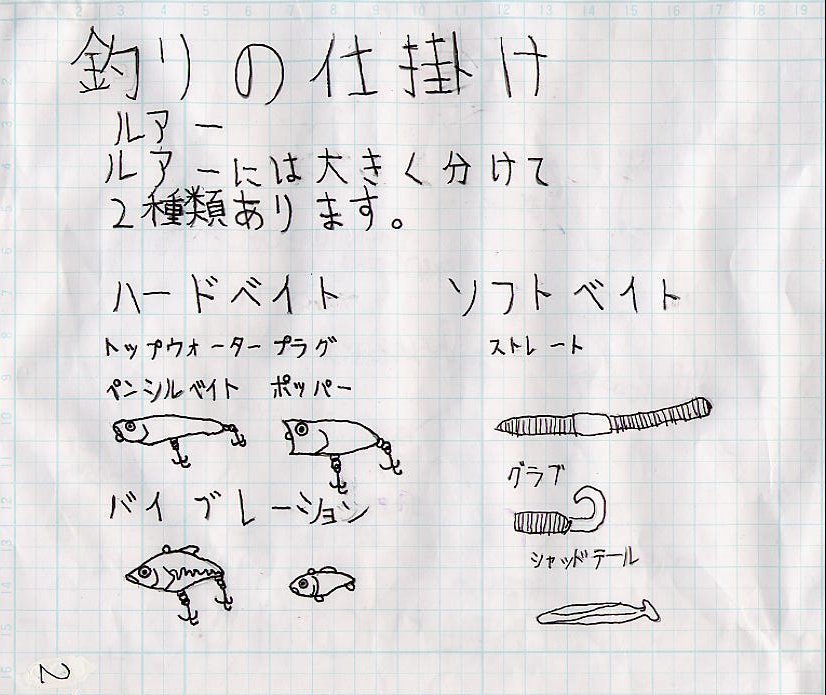 釣りの仕掛け
ルアー
ルアーには大きく分けて
2種類あります。
ハードベイト ソフトベイト
トップウォータープラグ ストレート
ペンシルベイト ポッパー
グラブ
バイブレーション
シャッドテール
2